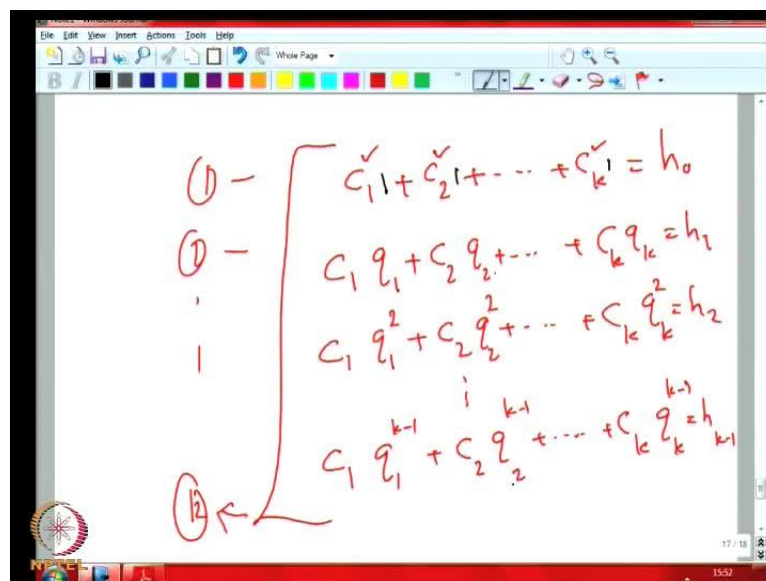 File Edit View Insert Actions Tools Help
Whole Page
B I
① – c₁1 + c₂1 + ---- + c_k1 = h₀
① – c₁ q₁ + c₂ q₂ + ---- + c_k q_k = h₁
c₁ q₁² + c₂ q₂² + ---- + c_k q_k² = h₂
c₁ q₁^{k-1} + c₂ q₂^{k-1} + ---- + c_k q_k^{k-1} = h_{k-1}
17 / 18
NPTEL
15:52